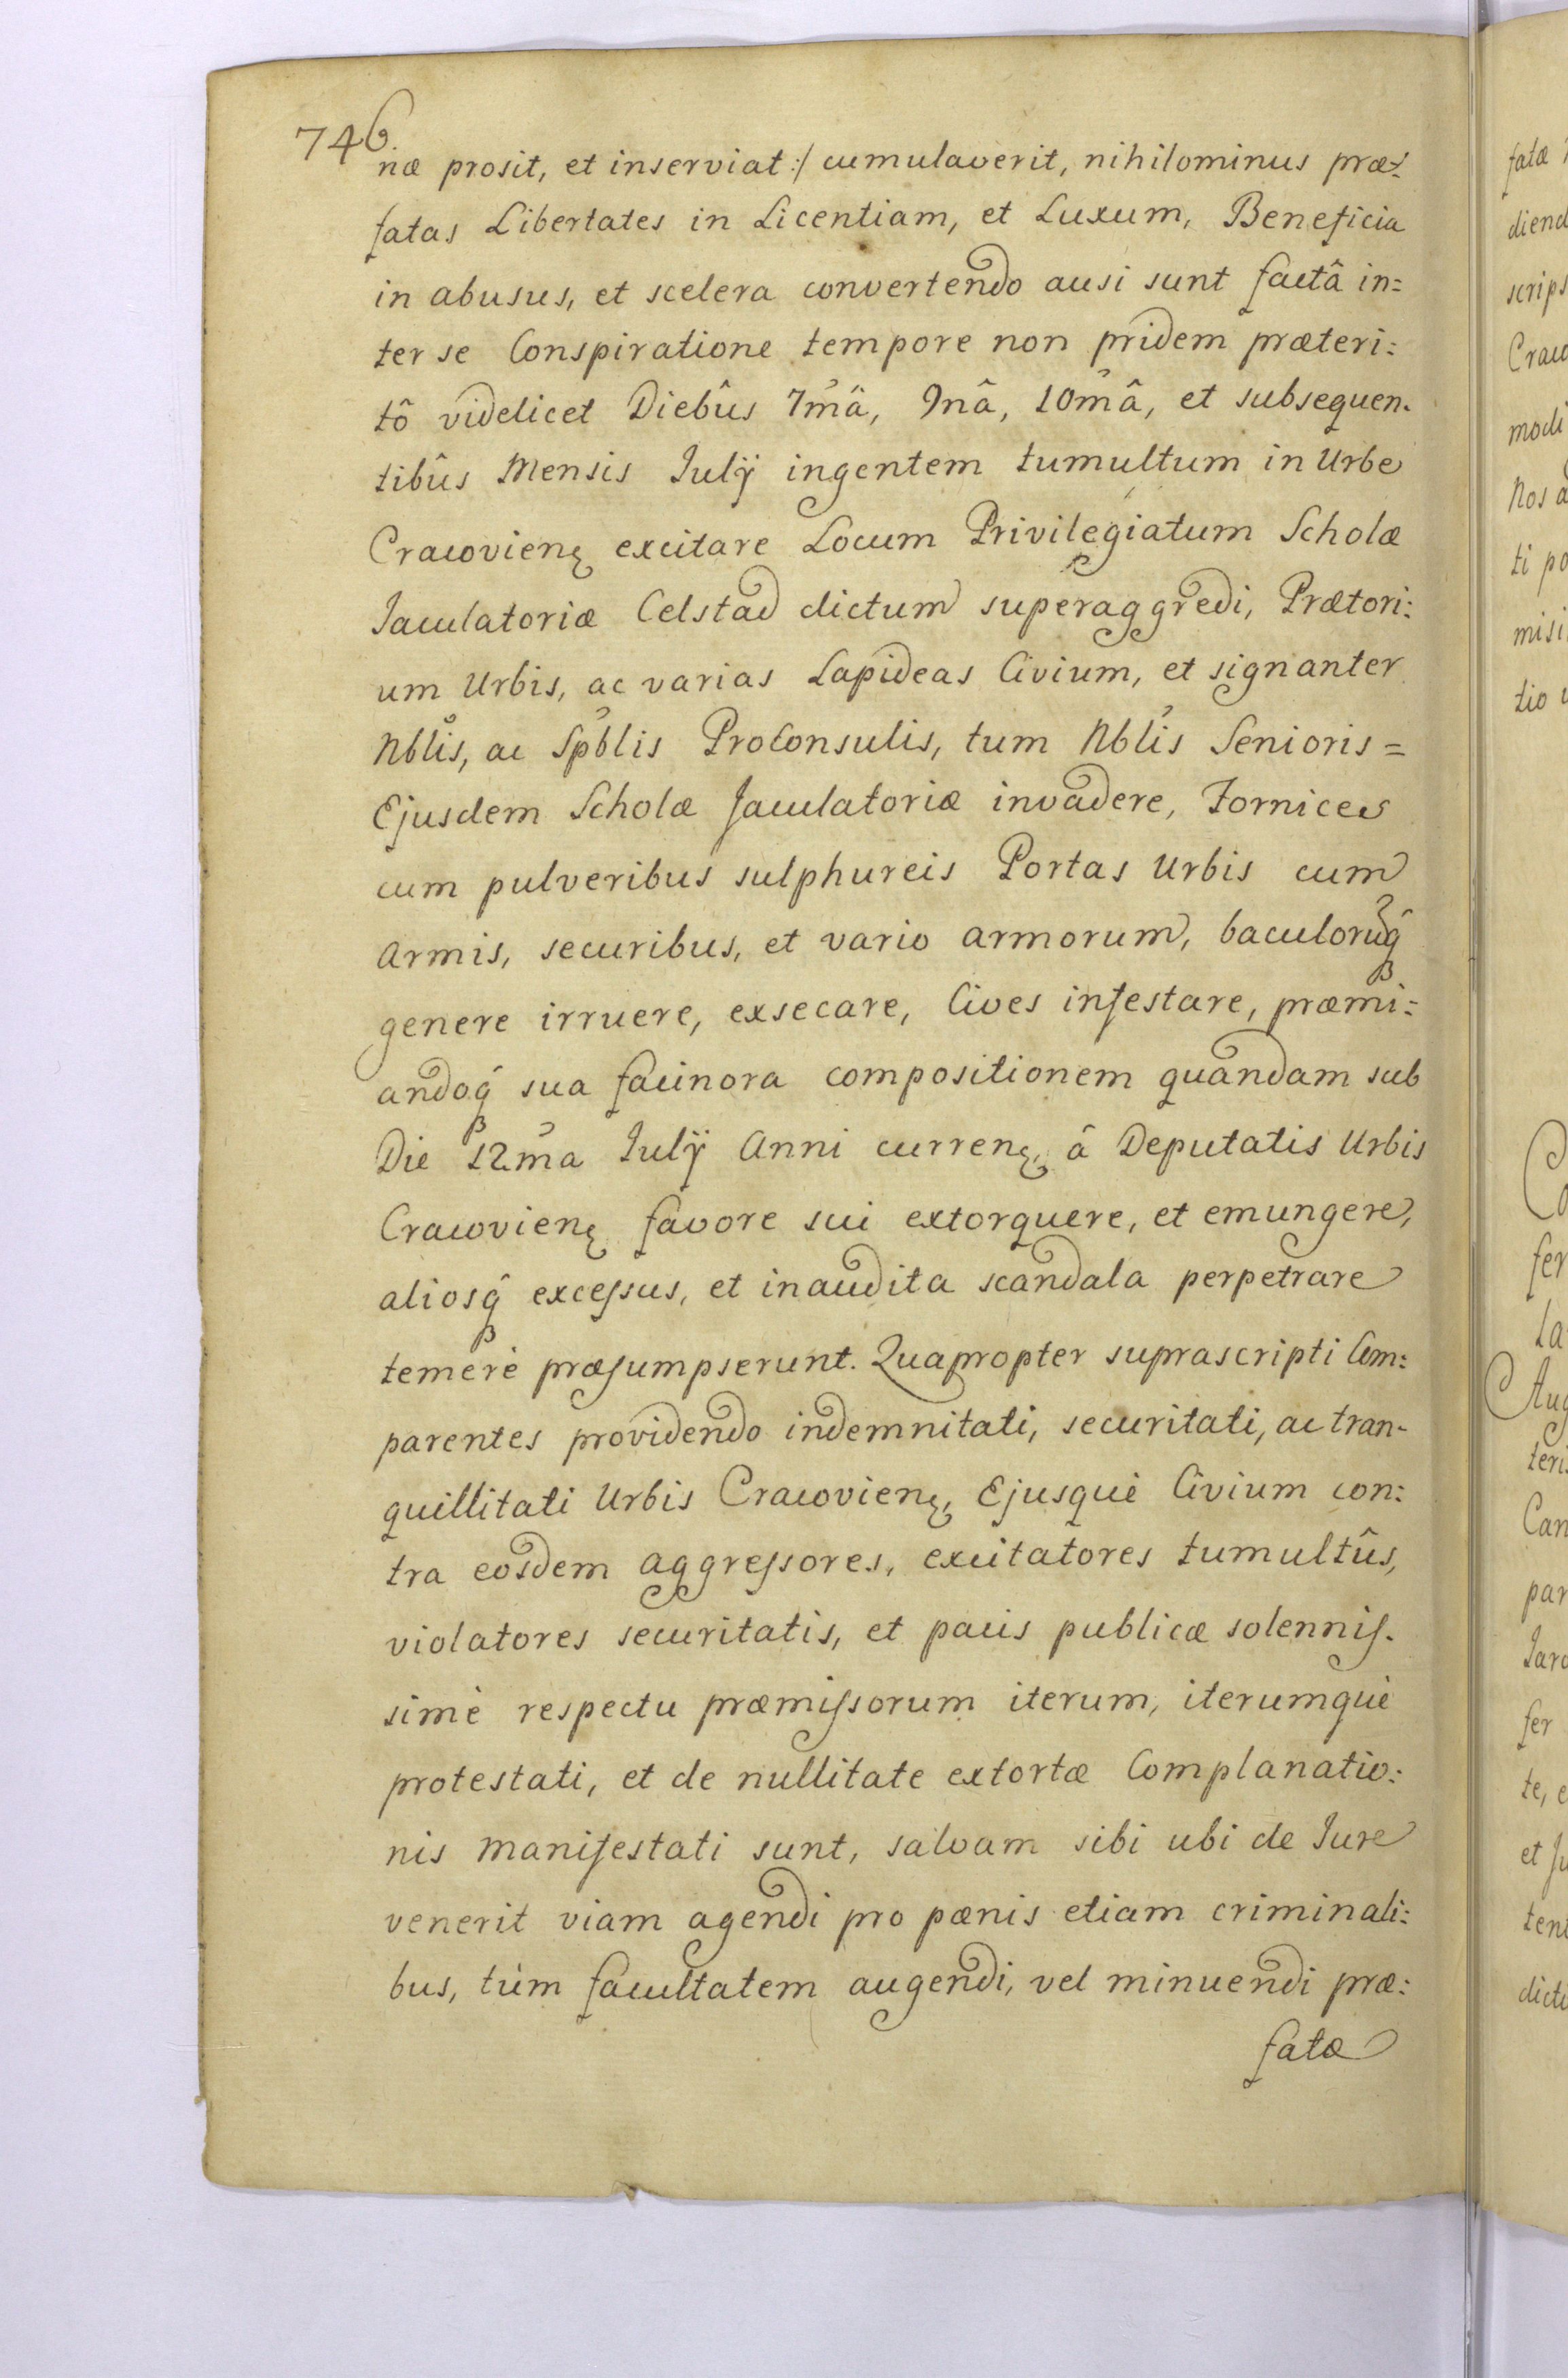 746.
næ prosit, et inserviat :/ cumulaverit, nihilominus præ:
fatas Libertates in Licentiam, et Luxum, Beneficia
in abusus, et scelera convertendo ausi sunt factâ in:
ter se Conspiratione tempore non pridem præteri:
tô videlicet Diebûs 7mâ, 9nâ, 10mâ, et subsequen.
tibûs Mensis Julÿ ingentem tumultum in Urbe
Cracovienę excitare Locum Privilegiatum Scholæ
Jaculatoriæ Celstad dictum superaggredi, Prætori:
um Urbis, ac varias Lapideas Civium, et signanter
Nblis, ac Spblis ProConsulis, tum Nblis Senioris =
Ejusdem Scholæ Jaculatoriæ invadere, Fornices
cum pulveribus sulphureis Portas Urbis cum
armis, securibus, et vario armorum, baculorūq́
genere irruere, exsecare, Cives infestare, præmi:
andoq́ sua facinora compositionem quandam sub
Die 12ma Julÿ Anni currenę, â Deputatis Urbis
Cracovienę favore sui extorquere, et emungere,
aliosq́ excessus, et inaudita scandala perpetrare
temerè præsumpserunt. Quapropter suprascripti Com:
parentes providendo indemnitati, securitati, ac tran-
quillitati Urbis Cracovienę, Ejusquè Civium con:
tra eosdem aggressores, excitatores tumultûs,
violatores securitatis, et pacis publicæ solennis.
simè respectu præmissorum iterum, iterumquè
protestati, et de nullitate extortæ Complanatio:
nis manifestati sunt, salvam sibi ubi de Jure
venerit viam agendi pro pænis etiam criminali:
bus, tùm facultatem augendi, vel minuendi præ:
fatæ